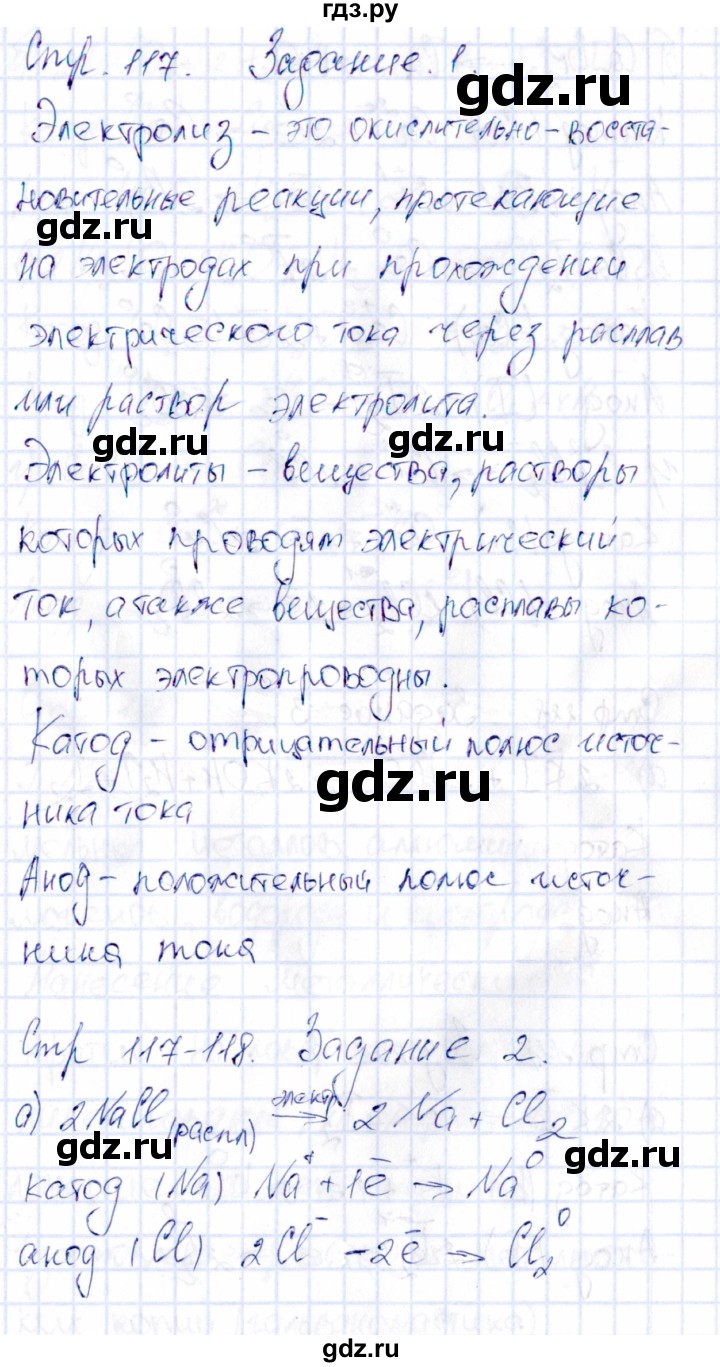 гдз.ру
Стр. 117. Задание. 1
gdz.ru
Электролиз – это окислительно-восста-
новительные реакции, протекающие
gdz.ru
gdz.ru
на электродах при прохождении
электрического тока через расплав
или раствор электролита.
gdz.ru
gdz.ru
Электролиты – вещества, растворы
которых проводят электрический
ток, а также вещества, расплавы ко-
торых электропроводны.
Катод – отрицательный полюс источ-
gdz.ru
ника тока
Анод – положительный полюс источ-
ника тока
gdz.ru
Стр 117-118. Задание 2.
а) 2NaCl (распл) электр. → 2Na + Cl₂
gdz.ru
gdz.ru
катод (Na) Na⁺ + 1ē → Na⁰
анод (Cl) 2Cl⁻ – 2ē → Cl₂⁰
gdz.ru
gdz.ru